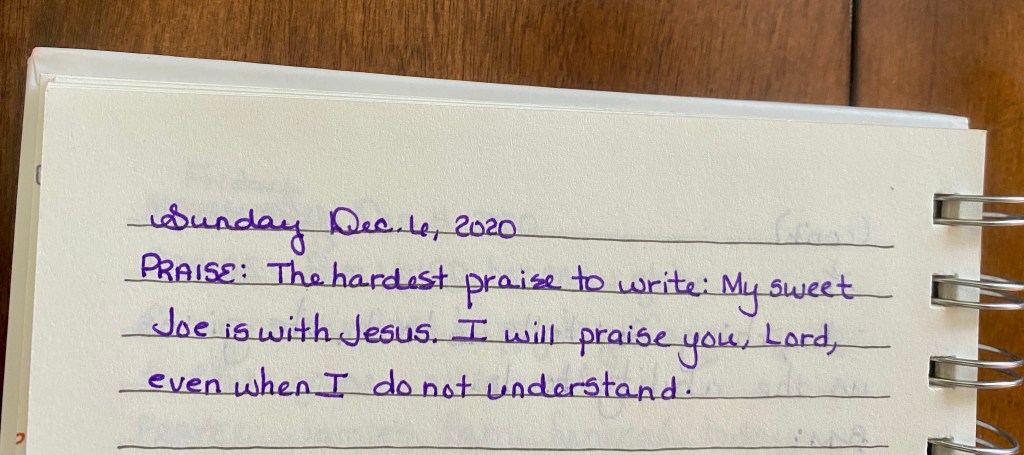 Sunday Dec. 6, 2020
PRAISE: The hardest praise to write: My sweet
Joe is with Jesus. I will praise you, Lord,
even when I do not understand.